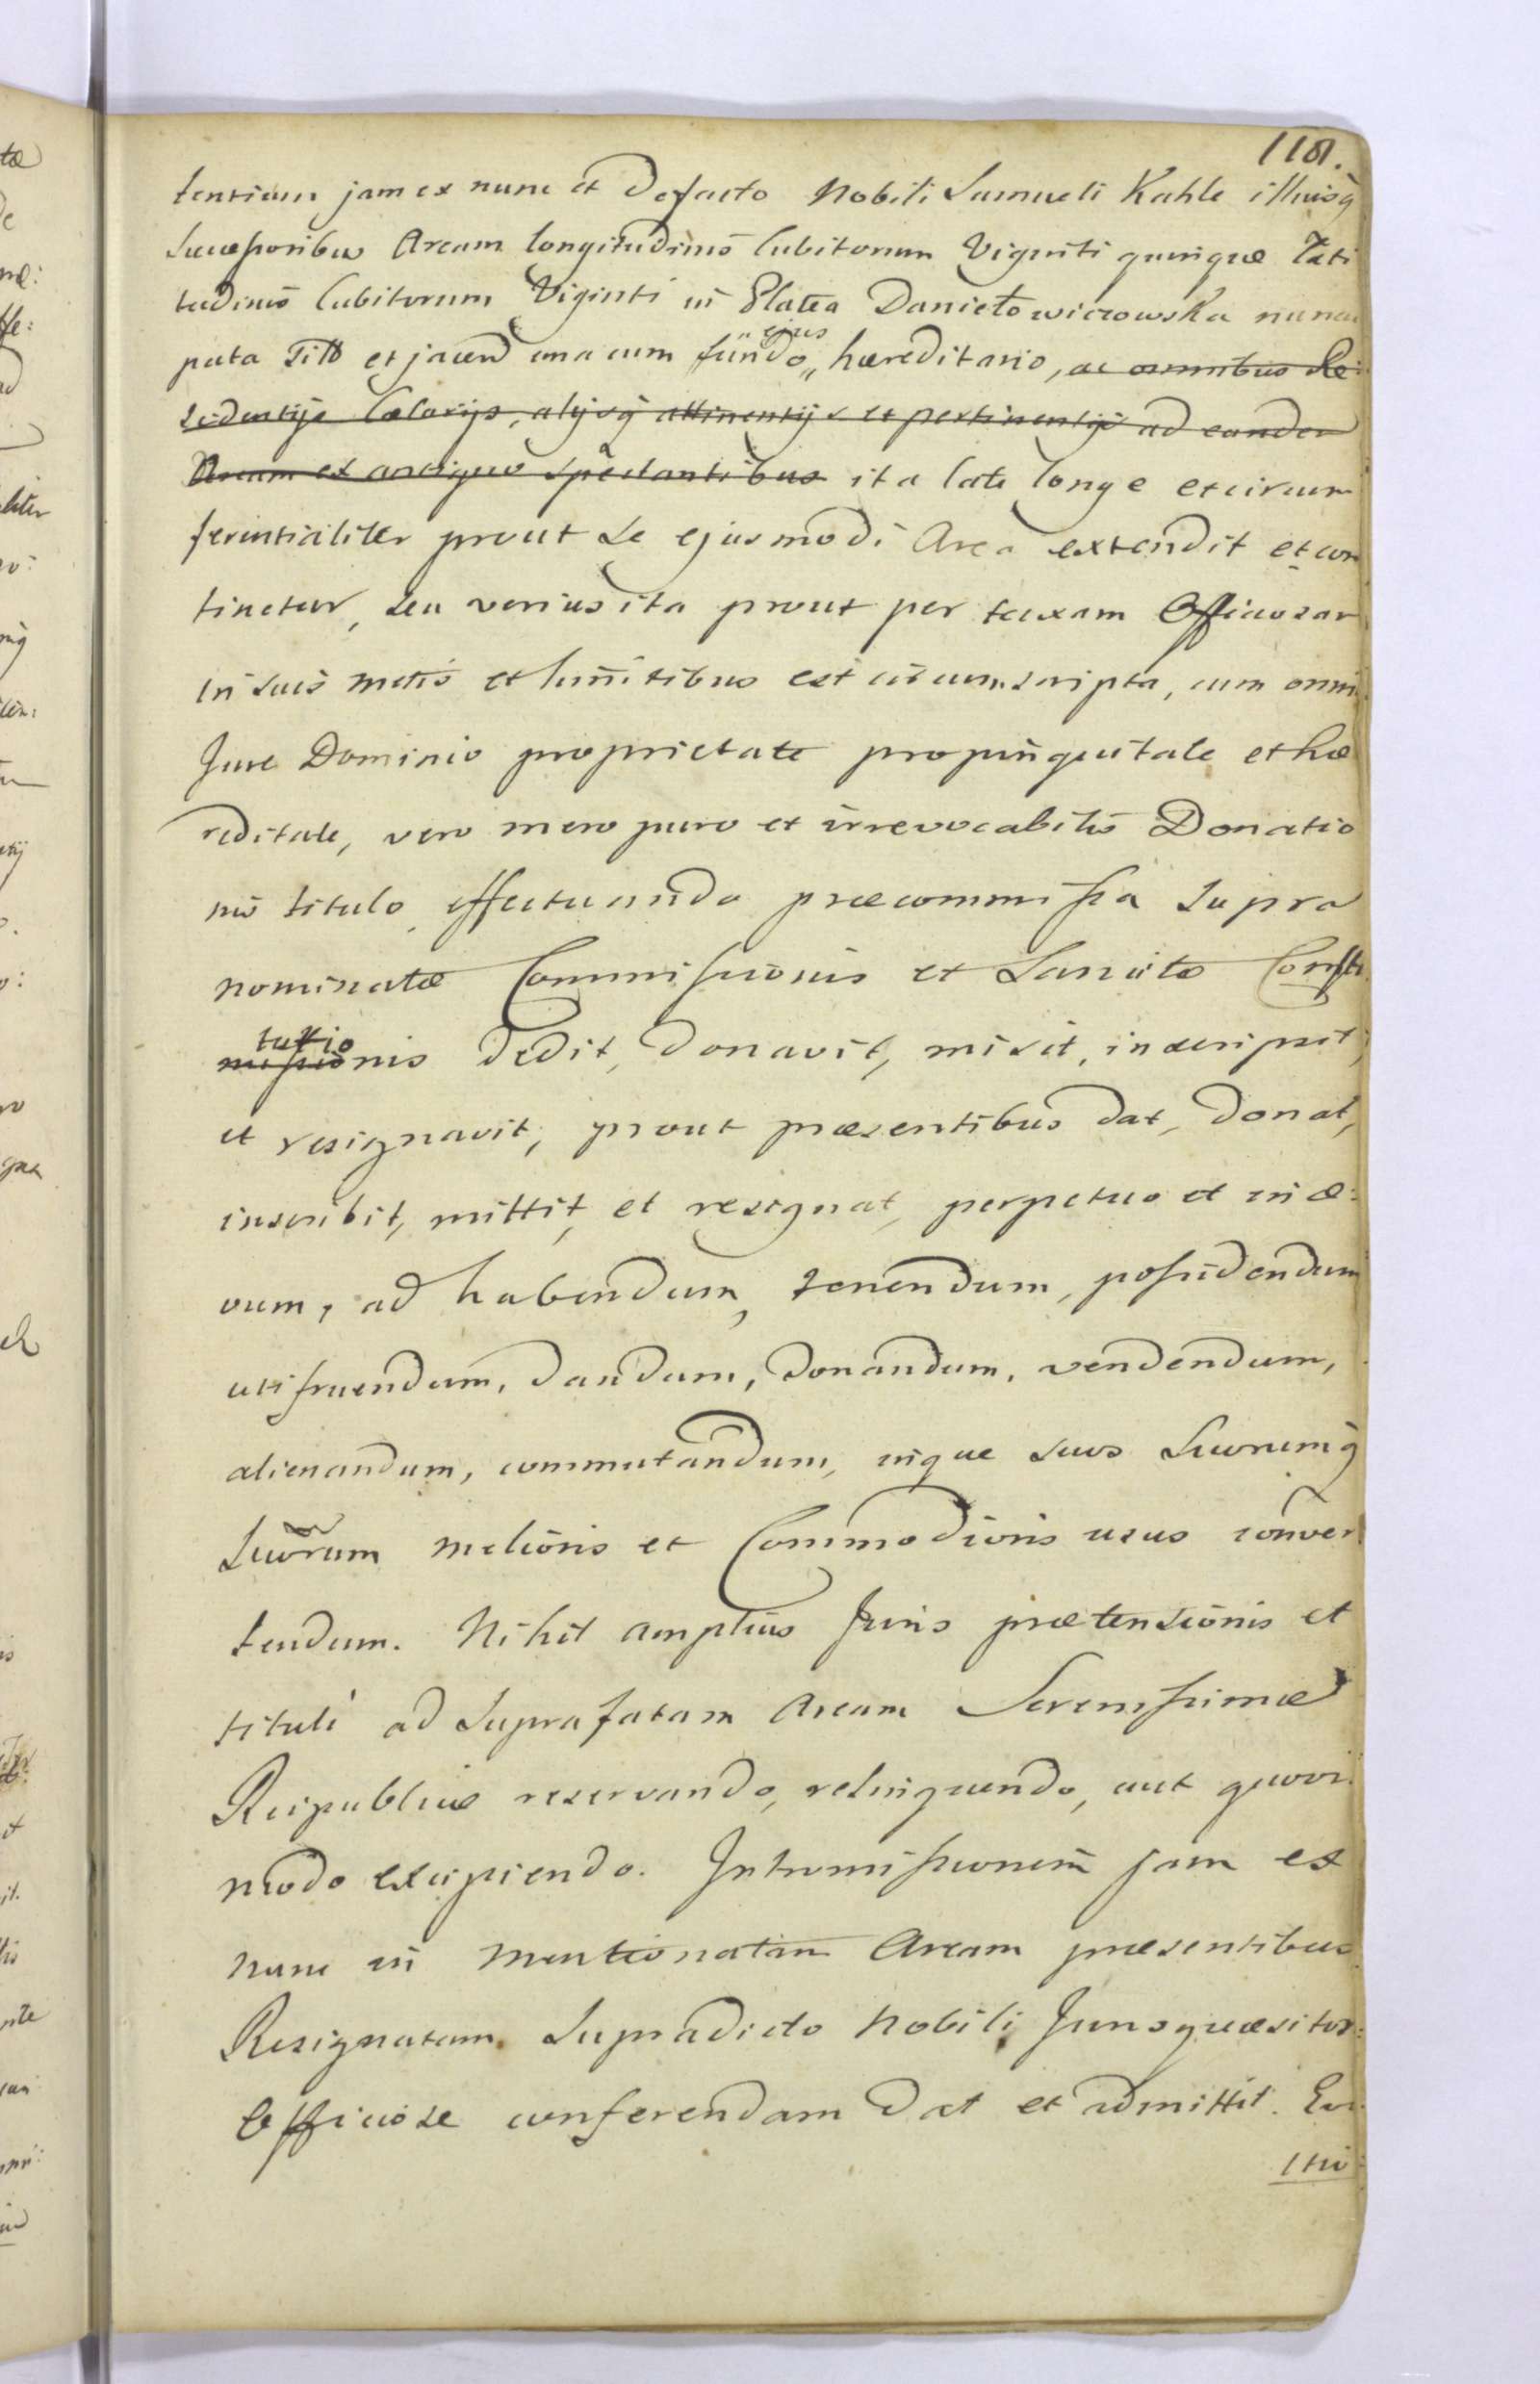 1181.
tentium jam ex nunc et Defacto Nobili Samueli Kahle illiusq̃
Successoribus Aream longitudinis Cubitorum Viginti quinque Lati
tudinis Cubitorum Viginti in Platea Danielowiczowska nuncu
pata Sitt et jacend una cum fundo „ ejus „ hæreditario, ac omnibus Re
sidentijs Celarijs, alijsq̃ attinentijs et pertinentijs ad eandem
Aream ex antiquo spectantibus ita late longe et circum
ferentialiter prout se ejusmodi Area extendit et con
tinetur, seu verius ita prout per taxam Officiosam
in suis metis et limitibus est circumscripta, cum omni
Jure Dominio proprietate propinquitate et hæ
reditate, vero mero puro et irrevocabilis Donatio
nis titulo, effectuando præcommissa supra
nominatæ Commissionis et Sancitæ Consti
missio tutionis dedit, donavit, misit, inscripsit,
et resignavit, prout præsentibus dat, donat,
inscribit, mittit, et resignat, perpetuo et in æ:
vum, ad habendum, tenendum, possidendum
utifruendum, dandum, donandum, vendendum,
alienandum, commutandum, inque suos Suorumq̃
Succrum melioris et Commodioris usus conver
tendum. Nihil amplius Juris prætensionis et
tituli ad Suprafatam Aream Serenissimæ
Reipublicæ reservando, relinquendo, aut quovi
modo excipiendo. Intromissionem jam ex
nunc in mentionatam Aream præsentibus
Resignatam Supradicto Nobili Jurisquæsitor:
Officiose conferendam dat et admittit. Evi